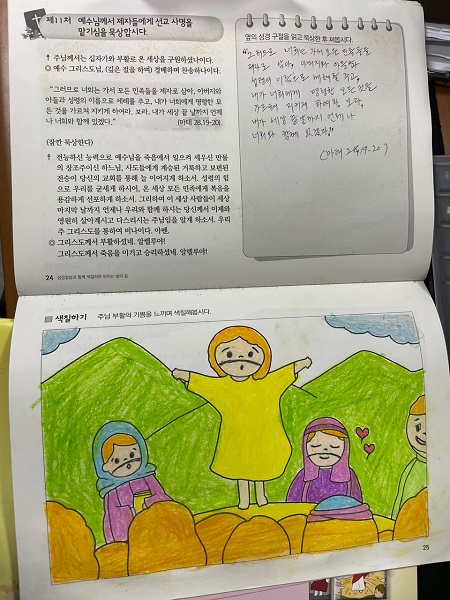 제11처 예수님께서 제자들에게 선교 사명을
맡기심을 묵상합시다.
† 주님께서는 십자가와 부활로 온 세상을 구원하셨나이다.
◎ 예수 그리스도님, (깊은 절을 하며) 경배하며 찬송하나이다.
"그러므로 너희는 가서 모든 민족들을 제자로 삼아, 아버지와
아들과 성령의 이름으로 세례를 주고, 내가 너희에게 명령한 모
든 것을 가르쳐 지키게 하여라. 보라, 내가 세상 끝 날까지 언제
나 너희와 함께 있겠다."
(마태 28,19-20)
(잠깐 묵상한다)
† 전능하신 능력으로 예수님을 죽음에서 일으켜 세우신 만물
의 창조주이신 하느님, 사도들에게 계승된 거룩하고 보편된
전승이 당신의 교회를 통해 늘 이어지게 하소서. 성령의 힘
으로 우리를 굳세게 하시어, 온 세상 모든 민족에게 복음을
용감하게 선포하게 하소서. 그리하여 이 세상 사람들이 세상
마지막 날까지 언제나 우리와 함께 하시는 당신께서 이제와
영원히 살아계시고 다스리시는 주님임을 알게 하소서. 우리
주 그리스도를 통하여 비나이다. 아멘.
◎ 그리스도께서 부활하셨네. 알렐루야!
그리스도께서 죽음을 이기고 승리하셨네. 알렐루야!
24
옆의 성경 구절을 읽고 묵상한 후 써봅시다.
"그러므로 너희는 가서 모든 민족들을
제자로 삼아, 아버지와 아들과
성령의 이름으로 세례를 주고,
내가 너희에게 명령한 모든 것을
가르쳐 지키게 하여라. 보라,
내가 세상 끝 날까지 언제나
너희와 함께 있겠다."
(마태 28,19-20)
색칠하기 주님 부활의 기쁨을 느끼며 색칠해봅시다.
25